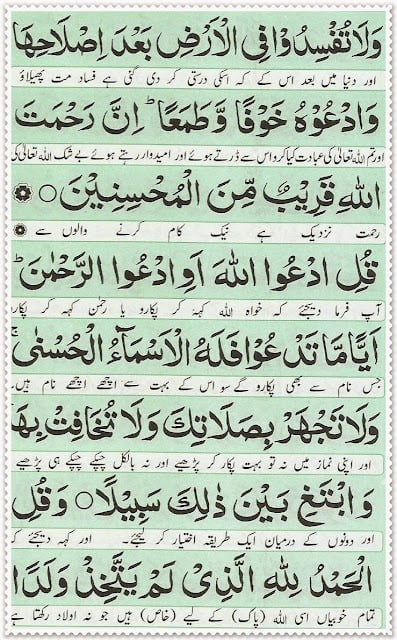 وَلَا تُفْسِدُوْا فِی الْاَرْضِ بَعْدَ اِصْلَاحِهَا
اور دنیا میں بعد اس کے کہ اسکی درستی کر دی گئی ہے فساد مت پھیلاؤ
وَادْعُوْهُ خَوْفًا وَّطَمَعًا ؕ اِنَّ رَحْمَتَ
اور تم اللہ تعالیٰ کی عبادت کیا کرو اس سے ڈرتے ہوئے اور امیدوار رہتے ہوئے بے شک اللہ تعالیٰ کی
اللّٰهِ قَرِیْبٌ مِّنَ الْمُحْسِنِیْنَ ○
رحمت نزدیک ہے نیک کام کرنے والوں سے
قُلِ ادْعُوا اللّٰهَ اَوِ ادْعُوا الرَّحْمٰنَ ؕ
آپ فرما دیجئے کہ خواہ اللہ کہہ کر پکارو یا رحمٰن کہہ کر پکارو
اَیًّا مَّا تَدْعُوْا فَلَهُ الْاَسْمَآءُ الْحُسْنٰی ۚ
جس نام سے بھی پکارو گے سو اس کے بہت سے اچھے اچھے نام ہیں۔
وَلَا تَجْهَرْ بِصَلَاتِكَ وَلَا تُخَافِتْ بِهَا
اور اپنی نماز میں نہ تو بہت پکار کر پڑھیے اور نہ بالکل چپکے چپکے ہی پڑھیے
وَابْتَغِ بَیْنَ ذٰلِكَ سَبِیْلًا ○ وَقُلِ
اور دونوں کے درمیان ایک طریقہ اختیار کر لیجئے۔ اور کہہ دیجئے کہ
الْحَمْدُ لِلّٰهِ الَّذِیْ لَمْ یَتَّخِذْ وَلَدًا
تمام خوبیاں اسی اللہ (پاک) کے لیے (خاص) ہیں جو نہ اولاد رکھتا ہے